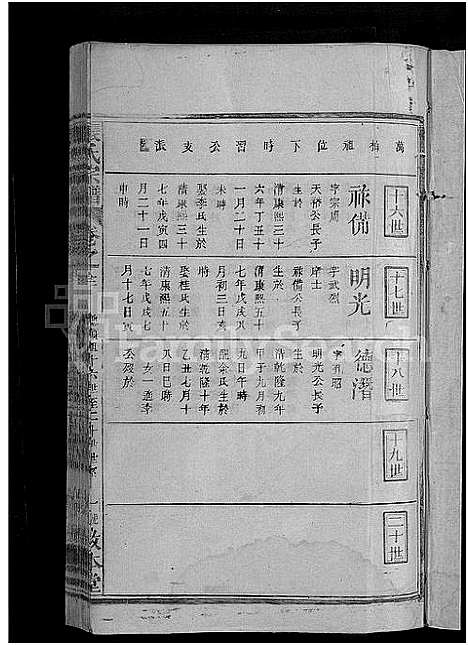 萬柏祖位下時習公支派
十六世
祿備
字宗周
天裕公長子
生於
清康熙三十
六年丁丑十
一月二十日
未時
娶李氏生於
清康熙三十
七年戊寅四
月二十一日
申時
十七世
明光
字武烈
庠士
祿備公長子
生於
清康熙五十
七年戊戌七
月初三日亥
時
娶桂氏生於
清康熙五十
七年戊戌八
月十七日亥
十八世
德溍
字有昭
明光公長子
生於
清乾隆九年
甲子九月初
九日午時
配余氏生於
清乾隆十年
乙丑七月十
八日巳時
女一適李
公歿於
十九世
二十世
張氏宗譜
卷之
敦本堂
FamilySearch